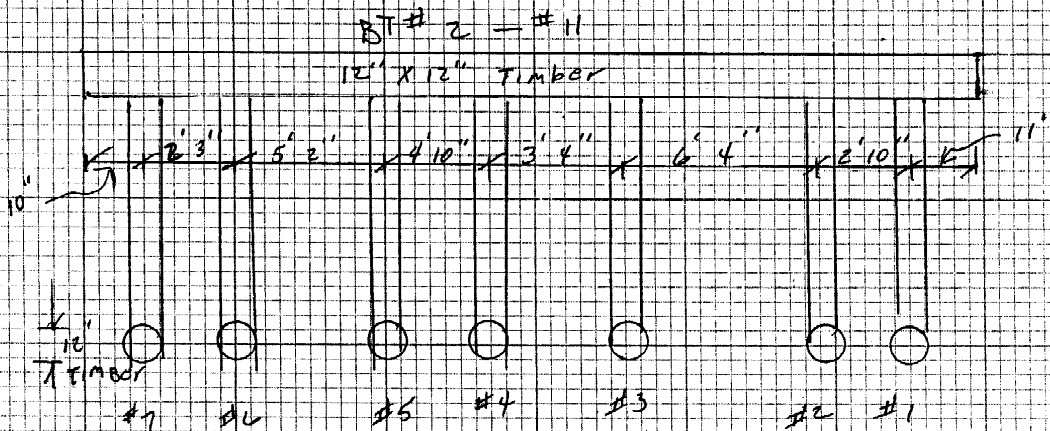 BT # 2 — # 11
12" X 12" Timber
3' 3" 5' 2" 4' 10" 3' 4" 6' 4" 2' 10" 11"
10"
12"
Timber
#7 #6 #5 #4 #3 #2 #1